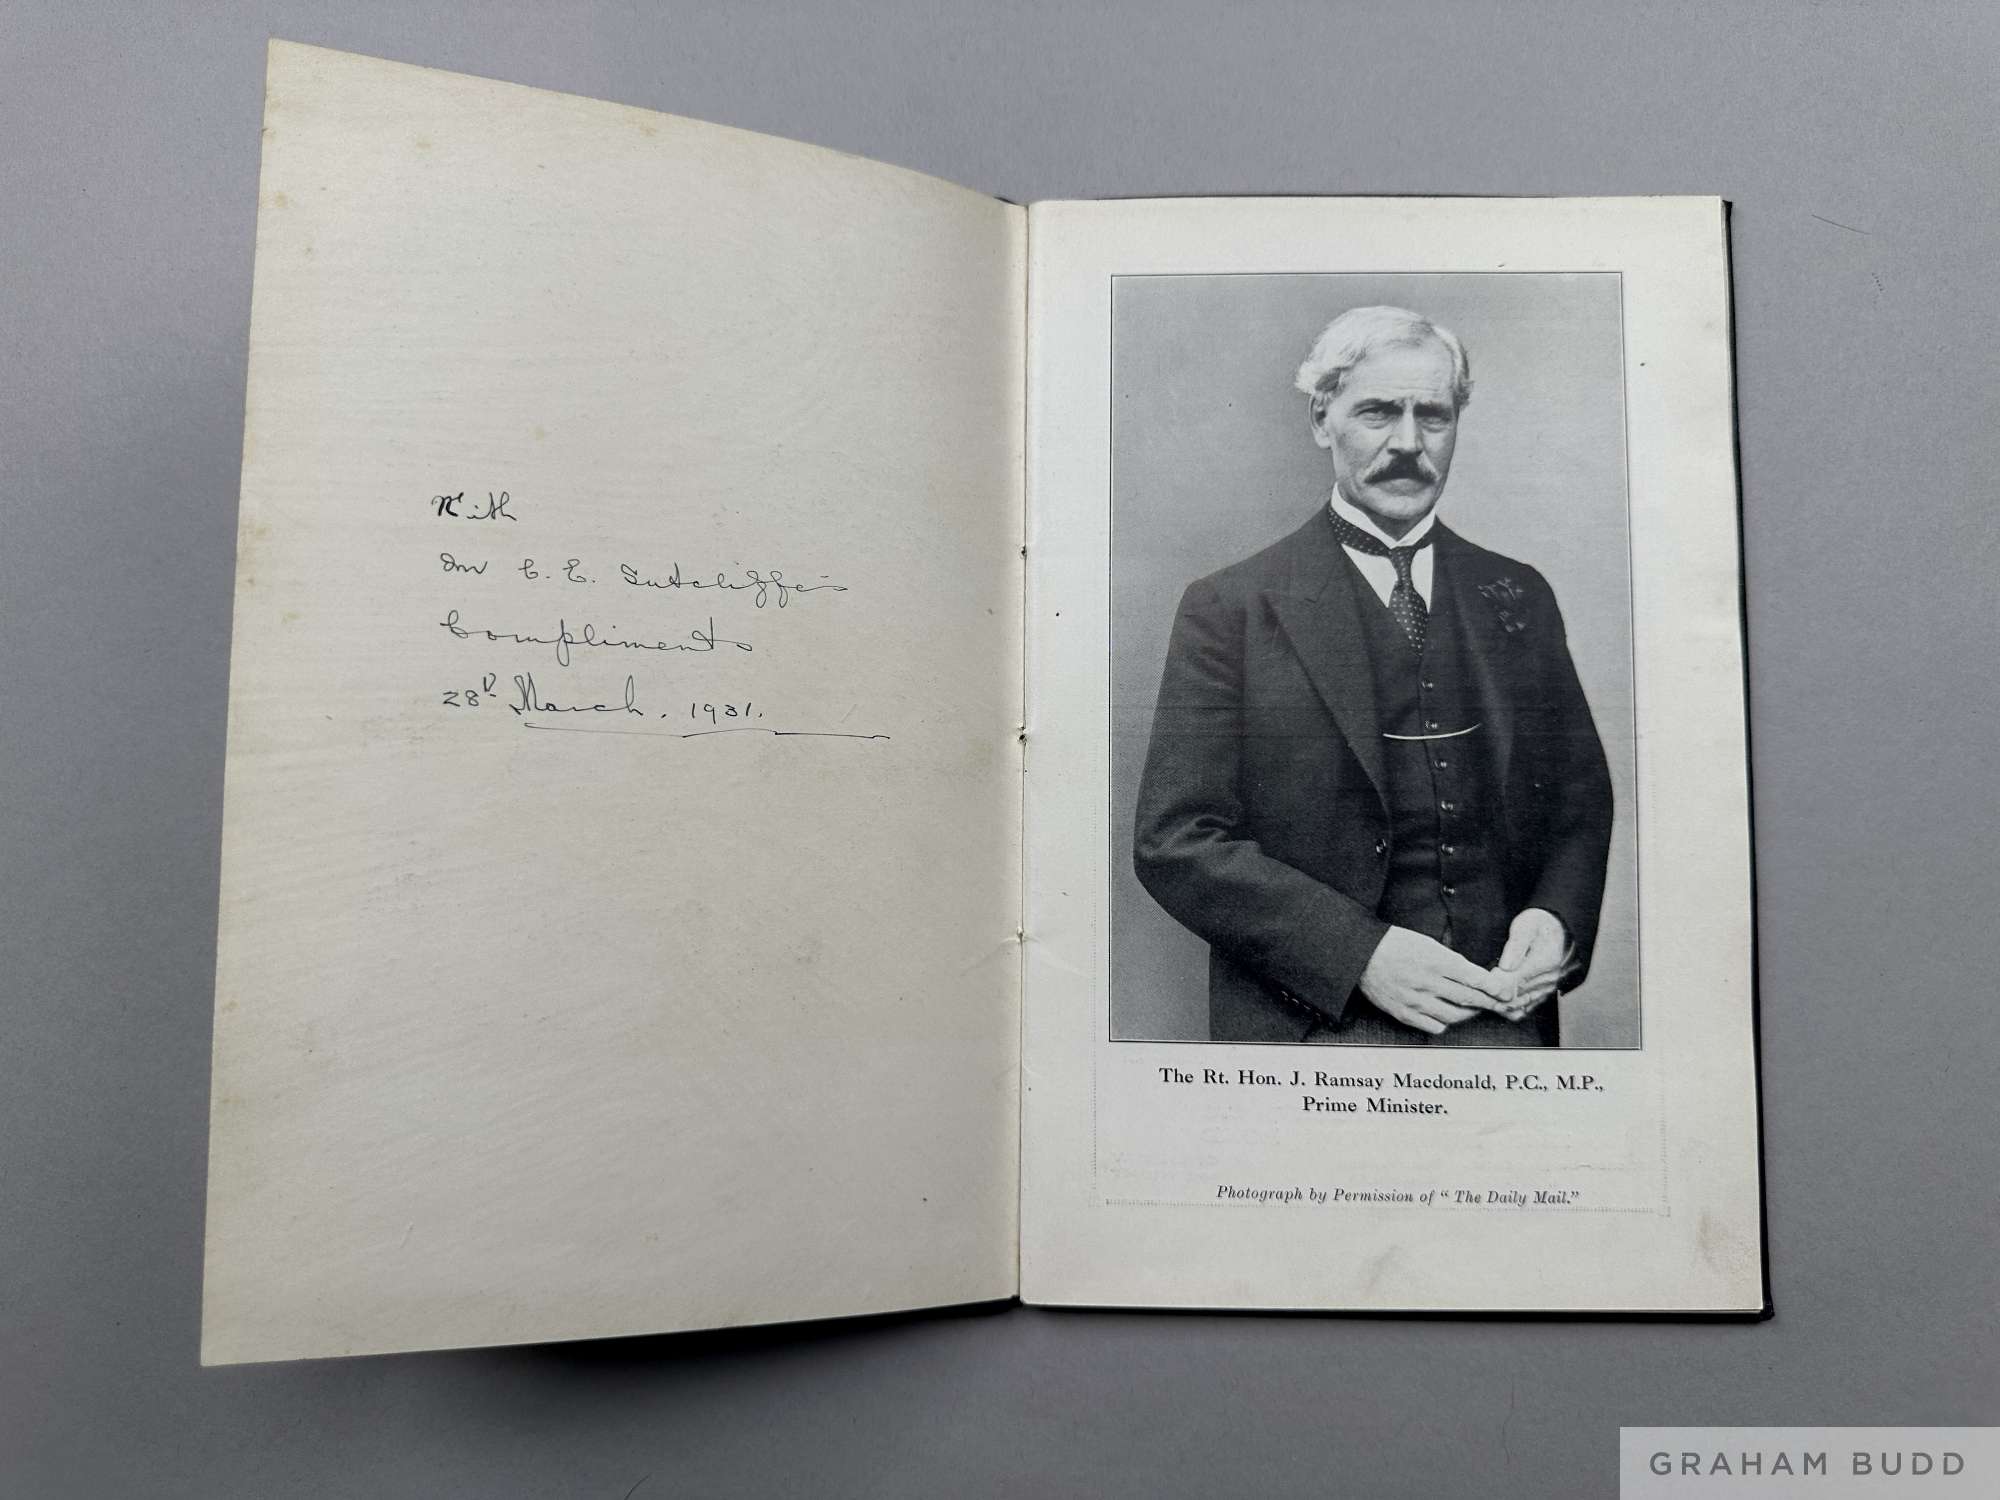 With
Mr C. E. Sutcliffe's
Compliments
28th March, 1931.
The Rt. Hon. J. Ramsay Macdonald, P.C., M.P.,
Prime Minister.
Photograph by Permission of “ The Daily Mail.”
GRAHAM BUDD